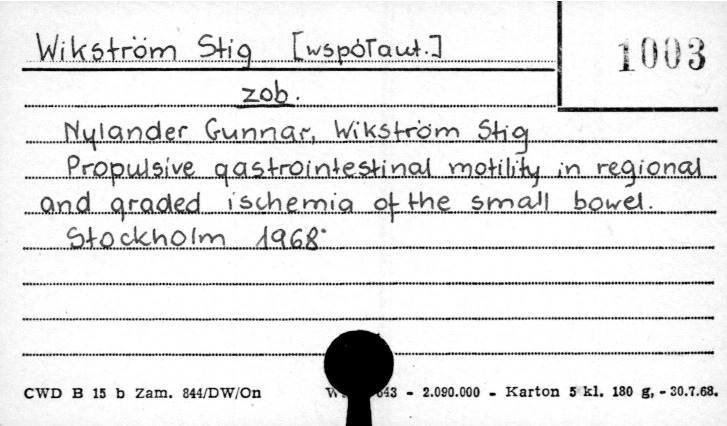 Wikström Stig [współaut.]
1003
zob.
Nylander Gunnar, Wikström Stig
Propulsive gastrointestinal motility in regional
and graded ischemia of the small bowel.
Stockholm 1968.
CWD B 15 b Zam. 844/DW/On 643 - 2.090.000 - Karton 5 kl. 180 g, - 30.7.68.